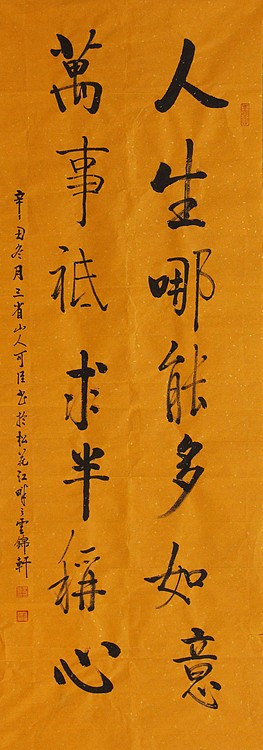 人生哪能多如意
萬事祗求半稱心
辛丑冬月三省山人可臣書於松花江畔之雲錦軒